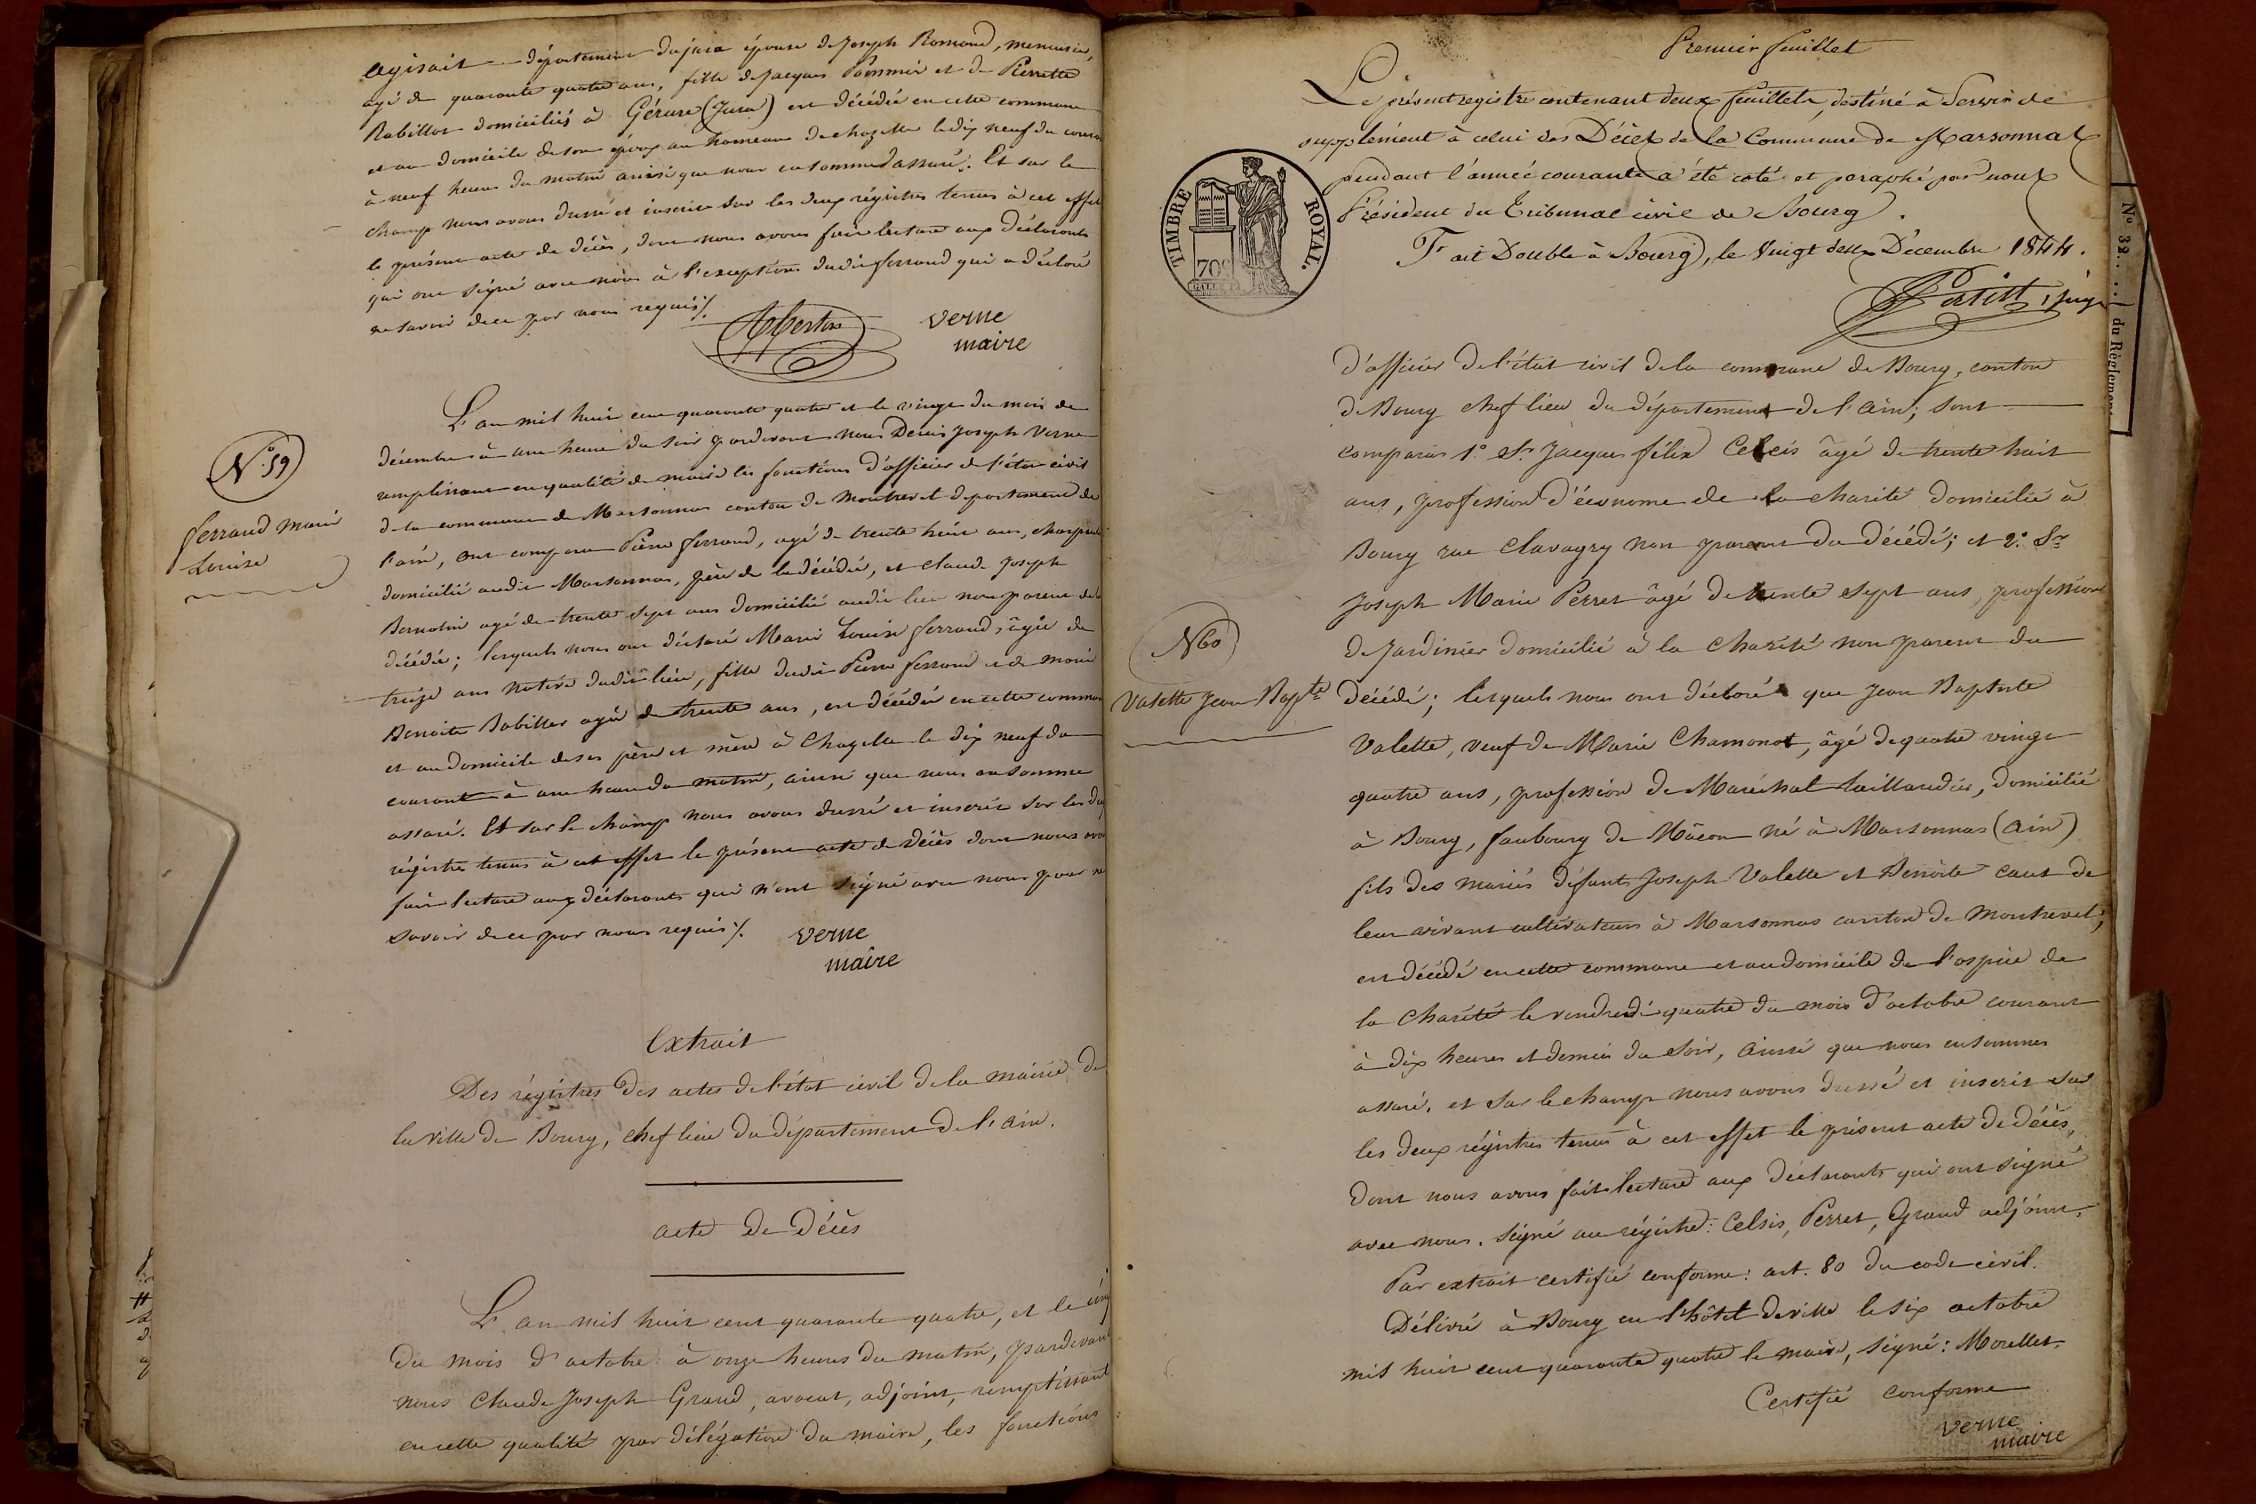 agisait département du jura épouse de Joseph Romand, menuisier,
agé de quarante quatre ans, fille de Jacques Pommier et de Pierrette
Rabillot domiciliés à Géruse (Jura) est décédée en cette commune
et au domicile de son époux au hameau de chazelle le dix neuf du courant
à neuf heures du matin ainsi que nous en sommes assuré. Et sur le
champ nous avons dressé et inscrit sur les deux régistres tenus à cet effet
le présent acte de décès, dont nous avons fait lecture aux déclarants
qui ont signé avec nous à l'exception dudit ferrand qui a déclaré
ne savoir de ce par nous requis /.
verne
maire
N° 59
ferrand marie
Louise
L'an mil huit cent quarante quatre et le vingt du mois de
décembre à une heure du soir pardevant nous Denis Joseph Verne
remplissant en qualité de maire les fonctions d'officier de l'état civil
de la commune de Marsonnas canton de Montrevel département de
l'ain, ont comparu Pierre ferrand, agé de trente huit ans, charpentier
domicilié audit Marsonnas, père de la décédée, et claude Joseph
Bernolin agé de trente sept ans domicilié audit lieu non parent de la
décédée; lesquels nous ont déclaré Marie Louise ferrand, âgée de
treize ans native dudit lieu, fille dudit Pierre ferrand et de marie
Benoite Babillas agée de trente ans, est décédée en cette commune
et au domicile de ses père et mère à Chazelle le dix neuf du
courant à une heure du matin, ainsi que nous en sommes
assuré. Et sur le champ nous avons dressé et inscrit sur les deux
régistres tenus à cet effet le présent acte de décès dont nous avons
fait lecture aux déclarants qui n'ont signé avec nous pour ne
savoir de ce par nous requis /.
verne
maire
Extrait
Des régistres des actes de l'état civil de la mairie de
la ville de Bourg, chef lieu du département de l'ain.
acte de Décès
L'an mil huit cent quarante quatre, et le cinq
du mois d'octobre à onze heures du matin, pardevant
nous Claude Joseph Grand, avocat, adjoint, remplissant
en cette qualité par délégation du maire, les fonctions
Premier feuillet
Le présent registre contenant deux feuillets, destiné à Servir de
supplément à celui des Décès de la Commune de Marsonnas
pendant l'année courante a été coté et paraphé par nous
Président du Tribunal civil de Bourg.
Fait Double à Bourg, le Vingt deux Décembre 1844.
juge
TIMBRE ROYAL.
70c
N° 32.... du Règlement
d'officier de l'état civil de la commune de Bourg, canton
de Bourg chef lieu du département de l'ain; sont
comparus 1° Sr Jacques félix Celsis âgé de trente huit
ans, profession d'économe de la charité domicilié à
Bourg rue Clavagry non parent du décédé; et 2° Sr
Joseph Marie Perret âgé de trente sept ans, profession
de Jardinier domicilié à la charité non parent du
N 60
Valette Jean Bapte
décédé; lesquels nous ont déclaré que Jean Baptiste
Valette, veuf de Marie Chamonot, âgé de quatre vingt
quatre ans, profession de Maréchal taillandier, domicilié
à Bourg, faubourg de Mâcon né à Marsonnas (Ain)
fils des mariés défunts Joseph Valette et Benoîte caut de
leur vivant cultivateurs à Marsonnas canton de Montrevel;
est décédé en cette commune et au domicile de l'ospice de
la Charité le vendredi quatre du mois d'octobre courant
à dix heures et demie du soir, ainsi que nous en sommes
assuré. et sur le champ nous avons dressé et inscrit sur
les deux régistres tenus à cet effet le présent acte de décès,
dont nous avons fait lecture aux déclarants qui ont signé
avec nous. Signé au régistre: Celsis, Perret, Grand adjoint.
Par extrait certifié conforme: art. 80 du code civil.
Délivré à Bourg en l'hôtel de ville le six octobre
mil huit cent quarante quatre le maire, signé: Morellet.
Certifié conforme
verne
maire